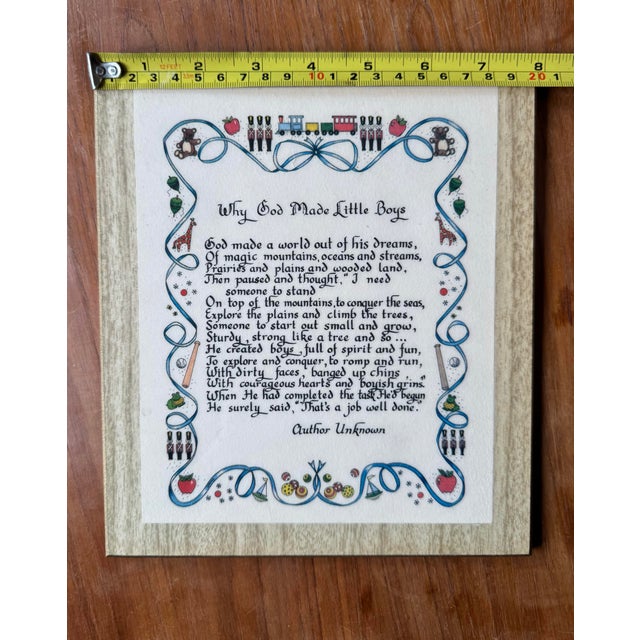 1 2 3 4 5 6 7 8
Why God Made Little Boys
God made a world out of his dreams,
Of magic mountains, oceans and streams,
Prairies and plains and wooded land,
Then paused and thought, "I need
someone to stand
On top of the mountains, to conquer the seas,
Explore the plains and climb the trees,
Someone to start out small and grow,
Sturdy, strong like a tree and so...
He created boys, full of spirit and fun,
To explore and conquer, to romp and run,
With dirty faces, banged up chins,
With courageous hearts and boyish grins."
When He had completed the task He'd begun
He surely said, "That's a job well done."
Author Unknown